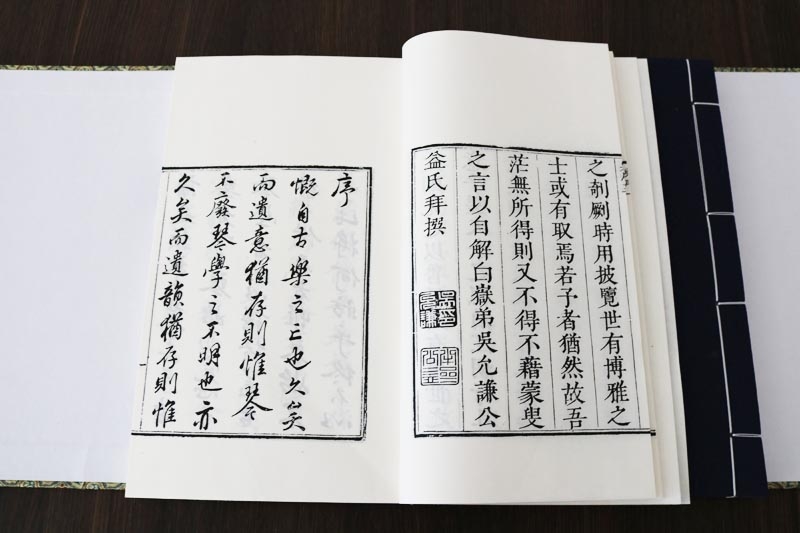 之剞劂時用披覽世有博雅之
士或有取焉若予者猶然故吾
茫無所得則又不得不藉蒙叟
之言以自解白嶽弟吳允謙公
益氏拜撰
序
慨自古樂之亡也久矣
而遺意猶存則惟琴
不廢琴學之不明也亦
久矣而遺韻猶存則惟